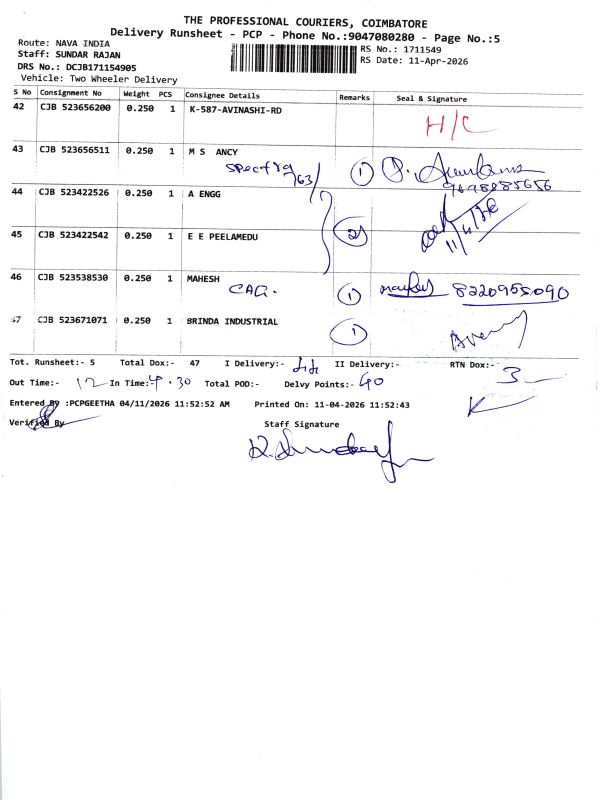 THE PROFESSIONAL COURIERS, COIMBATORE
Delivery Runsheet - PCP - Phone No.:9047080280 - Page No.:5
Route: NAVA INDIA
Staff: SUNDAR RAJAN
DRS No.: DCJB171154905
Vehicle: Two Wheeler Delivery
RS No.: 1711549
RS Date: 11-Apr-2026
S No Consignment No Weight PCS Consignee Details Remarks Seal & Signature
42 CJB 523656200 0.250 1 K-587-AVINASHI-RD H/C
43 CJB 523656511 0.250 1 M S ANCY 1
763
44 CJB 523422526 0.250 1 A ENGG
45 CJB 523422542 0.250 1 E E PEELAMEDU 2
46 CJB 523538530 0.250 1 MAHESH
CAG. 1 8220955090
47 CJB 523671071 0.250 1 BRINDA INDUSTRIAL 1
Tot. Runsheet:- 5 Total Dox:- 47 I Delivery:- 44 II Delivery:- RTN Dox:- 3
Out Time:- 12 In Time:- 4.30 Total POD:- Delvy Points:- 40
Entered By :PCPGEETHA 04/11/2026 11:52:52 AM Printed On: 11-04-2026 11:52:43
Verified By Staff Signature